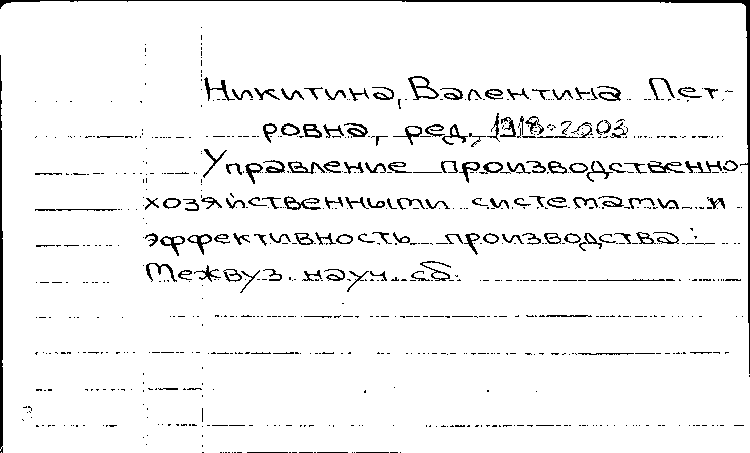 Никитина, Валентина Пет-
ровна, ред., 1918-2003
Управление производственно-
хозяйственными системами и
эффективность производства:
Межвуз. науч. сб.
3